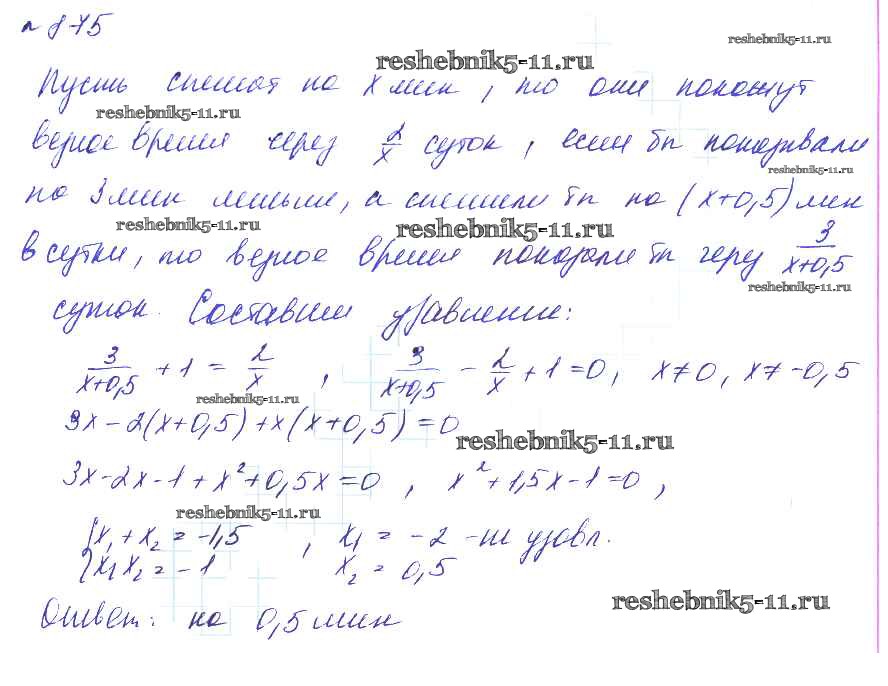 № 875
reshebnik5-11.ru
reshebnik5-11.ru
Пусть спешат на x мин, то они покажут
reshebnik5-11.ru
верное время через 2/x суток, если бы показывали
reshebnik5-11.ru
на 3 мин меньше, а спешили бы на (x+0,5) мин
reshebnik5-11.ru
reshebnik5-11.ru
в сутки, то верное время показали бы через 3/(x+0,5)
reshebnik5-11.ru
суток. Составим уравнение:
3/(x+0,5) + 1 = 2/x , 3/(x+0,5) - 2/x + 1 = 0, x≠0, x≠-0,5
reshebnik5-11.ru
3x - 2(x+0,5) + x(x+0,5) = 0
reshebnik5-11.ru
3x-2x-1+x²+0,5x=0 , x²+1,5x-1=0 ,
reshebnik5-11.ru
{x₁+x₂=-1,5 , x₁ = -2 - не удовл.
{x₁x₂=-1 x₂ = 0,5
reshebnik5-11.ru
Ответ: на 0,5 мин